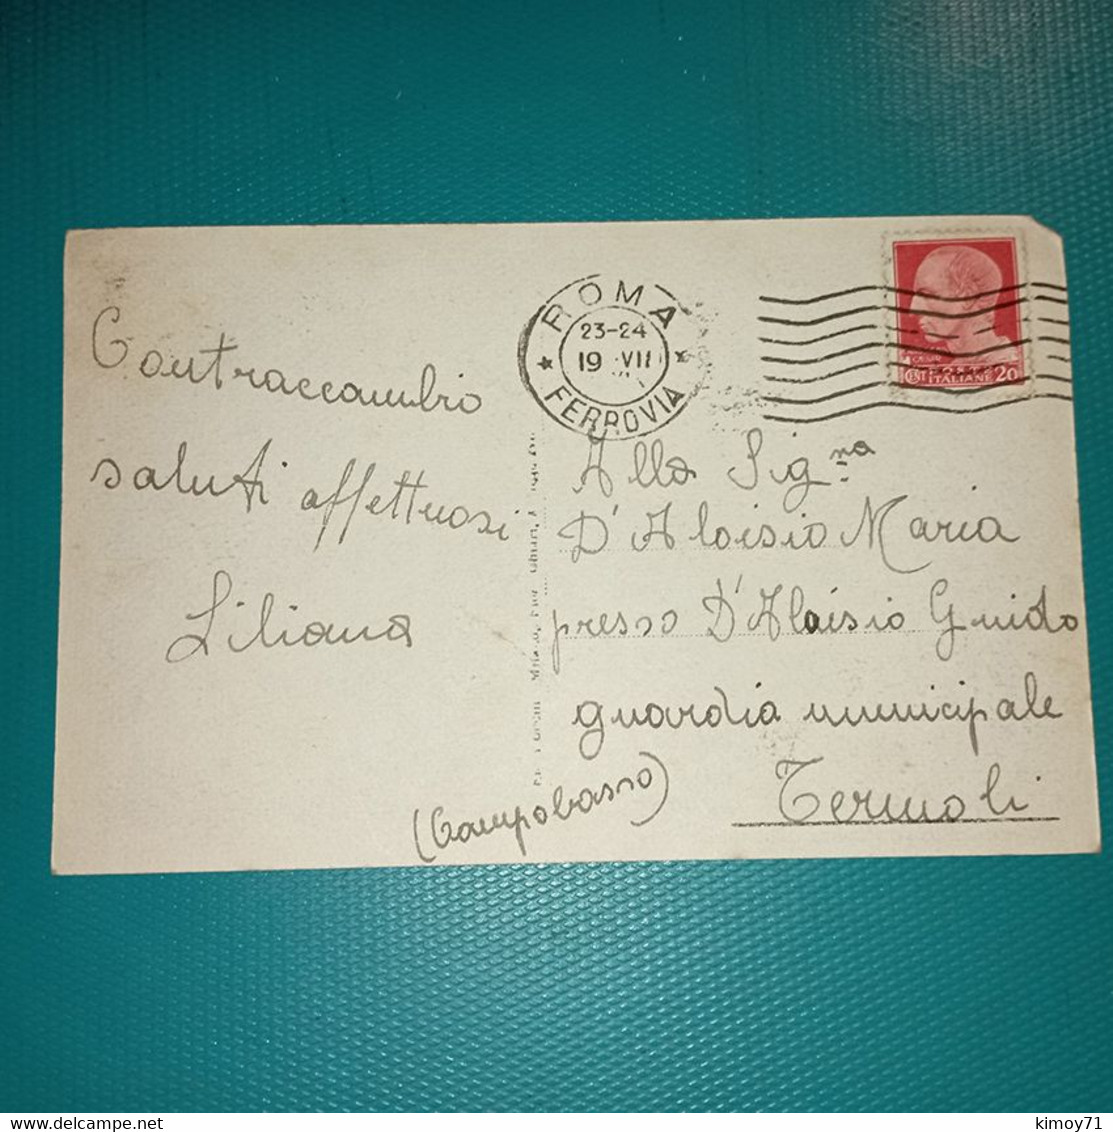 Contraccambio
saluti affettuosi
Liliana
ROMA
23-24
19 VII
FERROVIA
POSTE ITALIANE
CENT 20
Alla Sig.na
D'Aloisio Maria
presso D'Aloisio Guido
guardia municipale
Termoli
(Campobasso)
www.delcampe.net
kimoy71